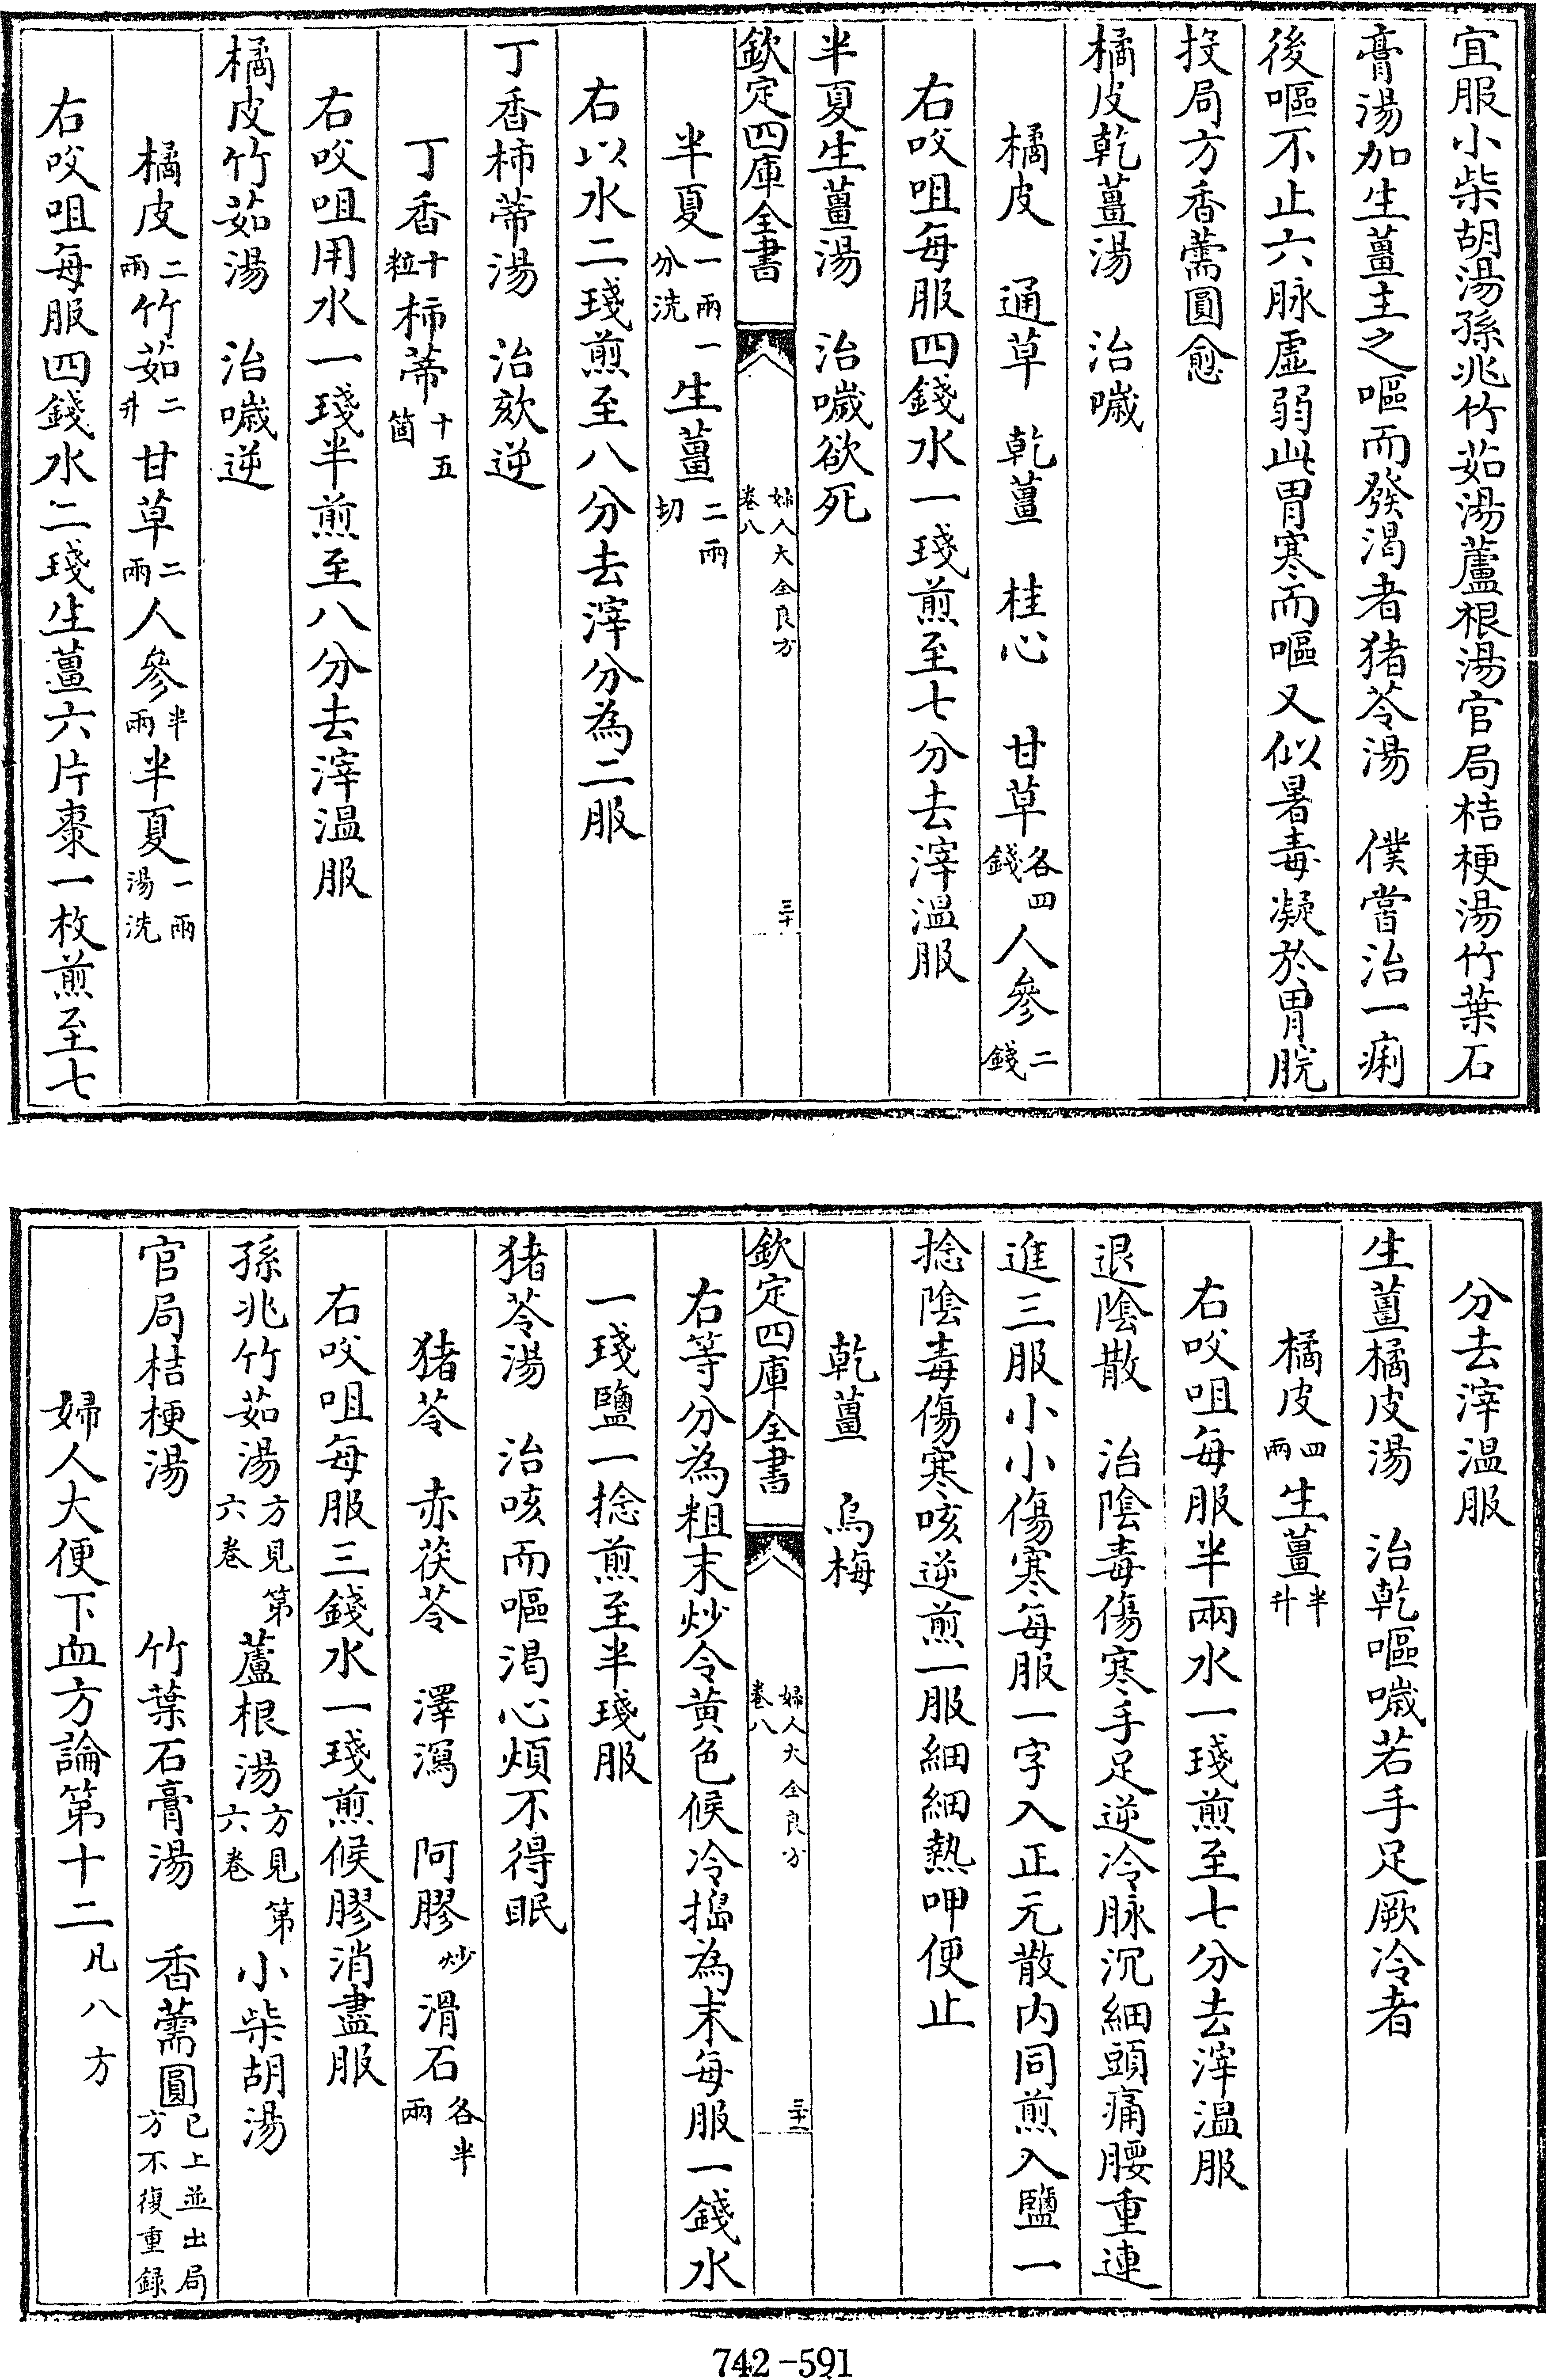 宜服小柴胡湯孫兆竹茹湯蘆根湯官局桔梗湯竹葉石
膏湯加生薑主之嘔而發渴者猪苓湯　僕嘗治一痢
後嘔不止六脉虛弱此胃寒而嘔又似暑毒凝於胃脘
投局方香薷圓愈
橘皮乾薑湯　治噦
橘皮　通草　乾薑　桂心　甘草各四錢人參二錢
右㕮咀每服四錢水一琖煎至七分去滓溫服
半夏生薑湯　治噦欲死
欽定四庫全書　婦人大全良方　卷八　三十
半夏一兩一分洗生薑二兩切
右以水二琖煎至八分去滓分為二服
丁香柿蒂湯　治欬逆
丁香十粒柿蒂十五箇
右㕮咀用水一琖半煎至八分去滓溫服
橘皮竹茹湯　治噦逆
橘皮二兩竹茹二升甘草二兩人參半兩半夏一兩湯洗
右㕮咀每服四錢水二琖生薑六片棗一枚煎至七
分去滓溫服
生薑橘皮湯　治乾嘔噦若手足厥冷者
橘皮四兩生薑半升
右㕮咀每服半兩水一琖煎至七分去滓溫服
退陰散　治陰毒傷寒手足逆冷脉沉細頭痛腰重連
進三服小小傷寒每服一字入正元散内同煎入鹽一
捻陰毒傷寒咳逆煎一服細細熱呷便止
乾薑　烏梅
欽定四庫全書　婦人大全良方　卷八　三十一
右等分為粗末炒令黄色候冷搗為末每服一錢水
一琖鹽一捻煎至半琖服
猪苓湯　治咳而嘔渴心煩不得眠
猪苓　赤茯苓　澤瀉　阿膠炒滑石各半兩
右㕮咀每服三錢水一琖煎候膠消盡服
孫兆竹茹湯方見第六卷蘆根湯方見第六卷小柴胡湯
官局桔梗湯　竹葉石膏湯　香薷圓已上並出局方不復重錄
婦人大便下血方論第十二凡八方
742-591